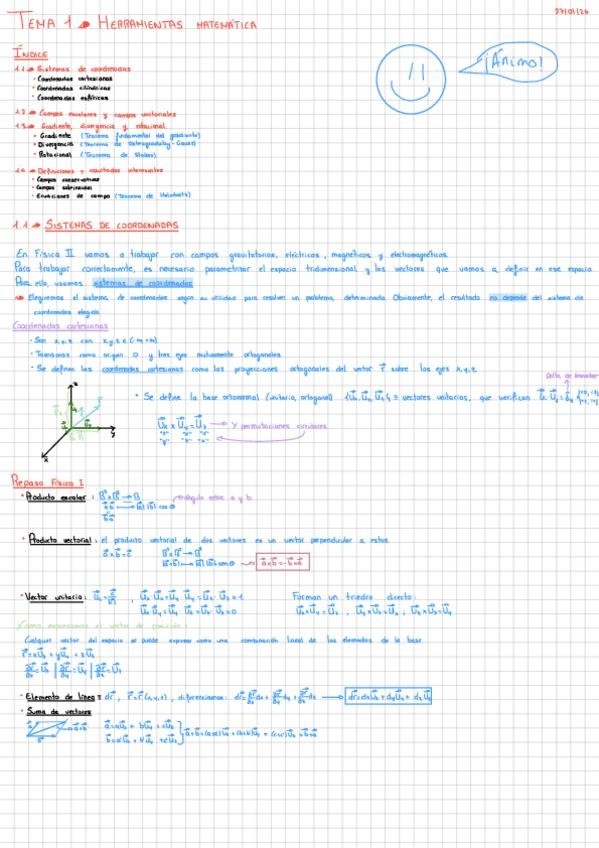 27/01/26
TEMA 1 → HERRAMIENTAS MATEMÁTICA
¡Ánimo!
ÍNDICE
1.1 → Sistemas de coordenadas
· Coordenadas cartesianas
· Coordenadas cilíndricas
· Coordenadas esféricas
1.2 → Campos escalares y campos vectoriales
1.3 → Gradiente, divergencia y rotacional
· Gradiente (Teorema fundamental del gradiente)
· Divergencia (Teorema de Ostrogradsky-Gauss)
· Rotacional (Teorema de Stokes)
1.4 → Definiciones y resultados interesantes
· Campos conservativos
· Campos
· Ecuaciones de campo (Teorema de Helmholtz)
1.1 → SISTEMAS DE COORDENADAS
En Física II vamos a trabajar con campos gravitatorios, eléctricos, magnéticos y electromagnéticos.
Para trabajar correctamente, es necesario parametrizar el espacio tridimensional y los vectores que vamos a definir en ese espacio
Para ello, usamos sistemas de coordenadas
→ Elegiremos el sistema de coordenadas según su utilidad para resolver un problema determinado. Obviamente, el resultado no depende del sistema de
coordenadas elegido.
Coordenadas cartesianas
· Son x,y,z con x,y,z ∈ (-∞,+∞)
· Tomamos como origen O y tres ejes mutuamente ortogonales
· Se definen las coordenadas cartesianas como las proyecciones ortogonales del vector r⃗ sobre los ejes x,y,z
Delta de Kronecker
· Se define la base ortonormal (unitaria, ortogonal) {U⃗x, U⃗y, U⃗z} ≡ vectores unitarios, que verifican
U⃗x × U⃗y = U⃗z → Y permutaciones circulares
z
y
x
Repaso Física I
· Producto escalar:
a⃗·b⃗ → |a⃗| |b⃗| cos θ → ángulo entre a y b
· Producto vectorial: el producto vectorial de dos vectores es un vector perpendicular a estos.
a⃗×b⃗=c⃗
a⃗×b⃗ = -b⃗×a⃗
· Vector unitario:
U⃗x·U⃗x = U⃗y·U⃗y = U⃗z·U⃗z = 1
Forman un triedro directo:
U⃗x·U⃗y = U⃗y·U⃗z = U⃗z·U⃗x = 0
U⃗x×U⃗y=U⃗z , U⃗y×U⃗z=U⃗x , U⃗z×U⃗x=U⃗y
¿Cómo expresamos el vector de posición?
Cualquier vector del espacio se puede expresar como una combinación lineal de los elementos de la base
r⃗ = xU⃗x + yU⃗y + zU⃗z
∂r⃗/∂x = U⃗x | ∂r⃗/∂y = U⃗y | ∂r⃗/∂z = U⃗z
· Elemento de línea ≡ dr⃗, r⃗ = r⃗(x,y,z), diferenciamos: dr⃗ = ∂r⃗/∂x dx + ∂r⃗/∂y dy + ∂r⃗/∂z dz → dr⃗ = dxU⃗x + dyU⃗y + dzU⃗z
· Suma de vectores
a⃗+b⃗
a⃗ = aU⃗x + bU⃗y + cU⃗z
b⃗ = a'U⃗x + b'U⃗y + c'U⃗z
a⃗+b⃗ = (a+a')U⃗x + (b+b')U⃗y + (c+c')U⃗z = b⃗+a⃗